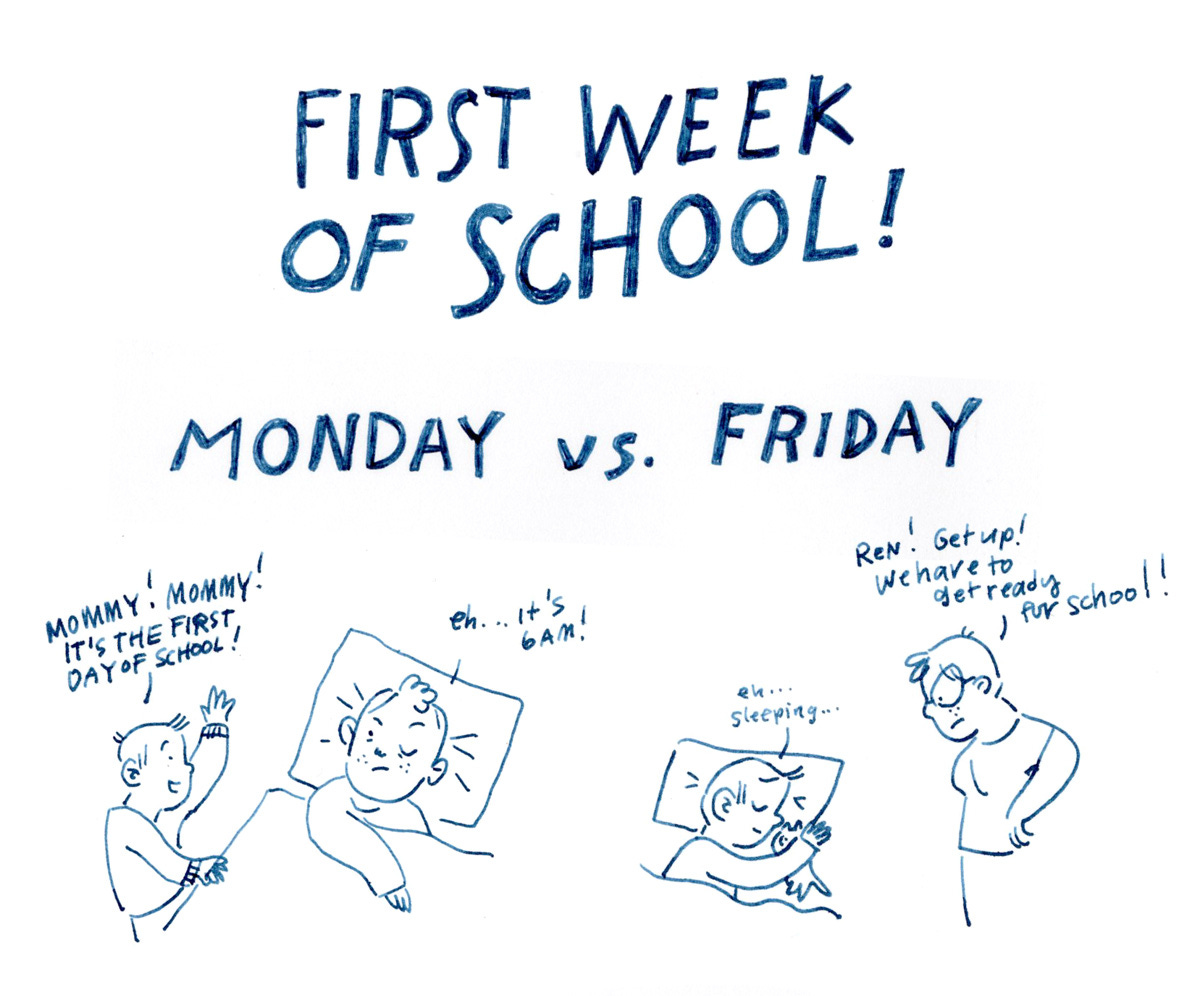 FIRST WEEK
OF SCHOOL!
MONDAY vs. FRIDAY
MOMMY! MOMMY!
IT'S THE FIRST
DAY OF SCHOOL!
eh... it's
6AM!
eh...
sleeping...
REN! Get up!
We have to
get ready
for school!